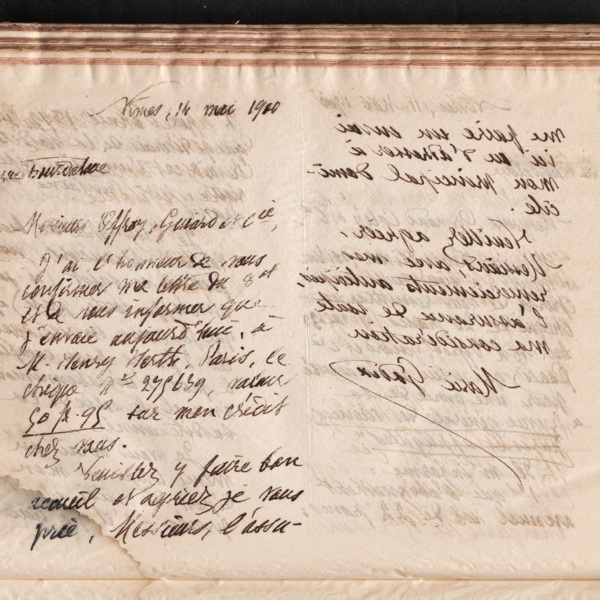 Nimes, 14 mai 1900
rue Bourdaloue
Messieurs Offroy, Guiard et Cie,
J'ai l'honneur de vous
confirmer ma lettre du 8 ct
et de vous informer que
j'envoie aujourd'hui, à
M. Henry Berth, Paris, le
chèque No 275639, valeur
50 fr. 95 sur mon crédit
chez vous.
Veuillez y faire bon
accueil et agréez je vous
prie, Messieurs, l'assu-
me faire un envoi
ici ou d'adresser à
mon principal domi-
cile.
Veuillez agréer,
Messieurs, avec mes
remerciements anticipés,
l'assurance de toute
ma considération
Marie Godin